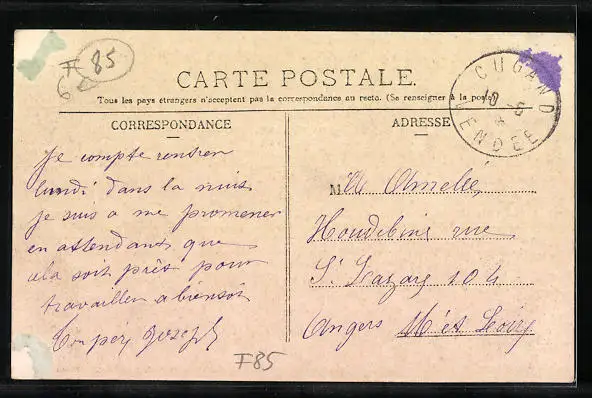 F 85
CARTE POSTALE.
Tous les pays étrangers n'acceptent pas la correspondance au recto. (Se renseigner à la poste)
CUGAND
VENDEE
CORRESPONDANCE
ADRESSE
Je compte rentrer
lundi dans la nuit
je suis a me promener
en attendant que
cela soit prêt pour
travailler a bientôt
Ton père Joseph
Mlle Amelie
Houdebine rue
St Lazare 104
Angers M et Loire
F85